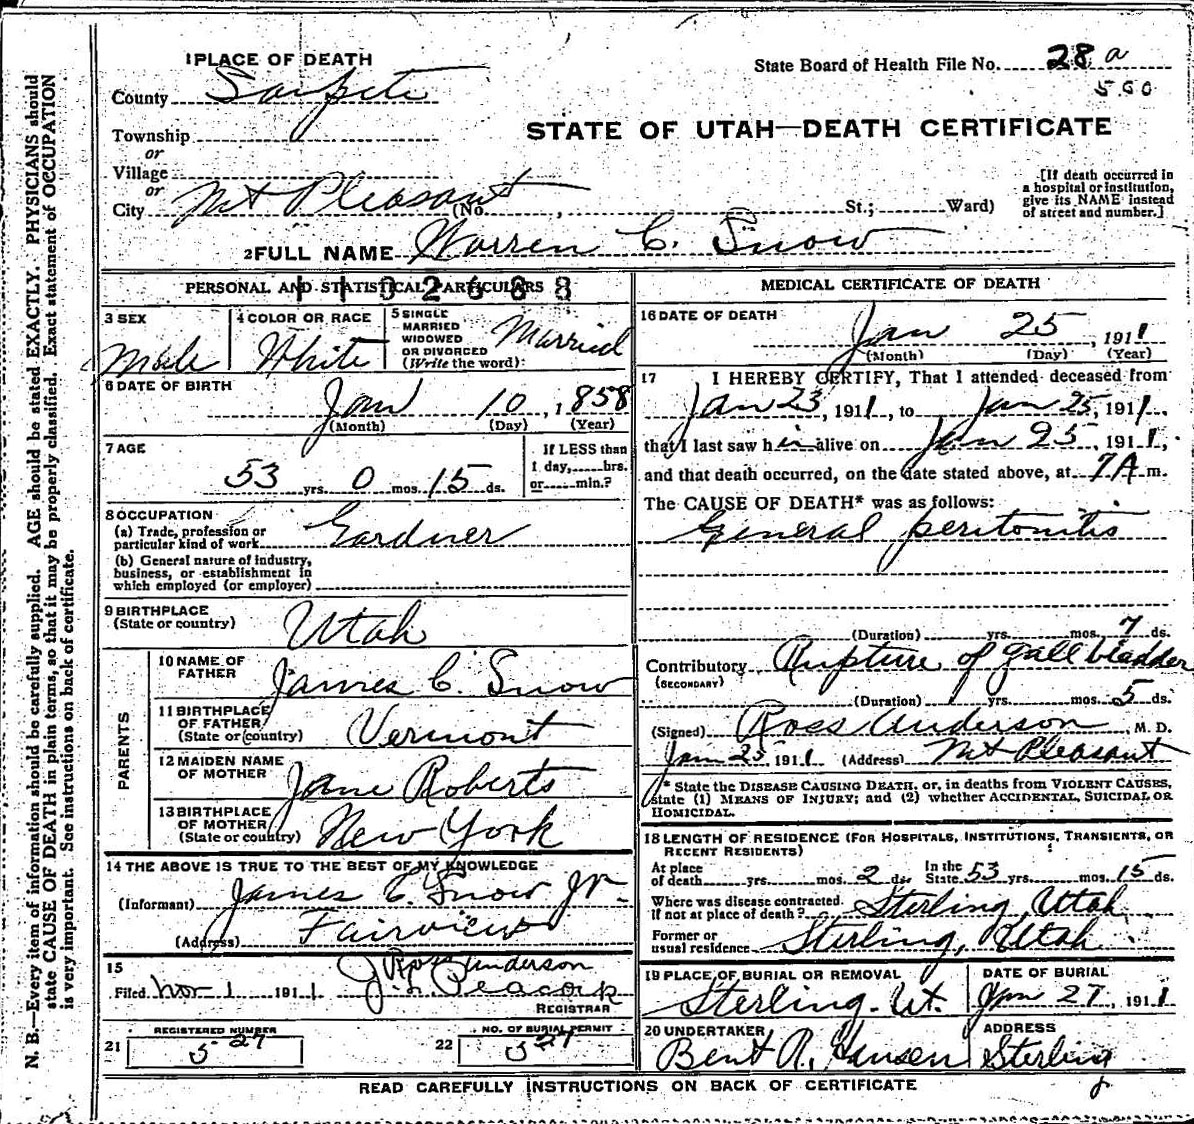 1 PLACE OF DEATH
State Board of Health File No. 28 a
County Sanpete
560
STATE OF UTAH—DEATH CERTIFICATE
Township
or
Village
or
City Mt Pleasant (No. , St.; Ward)
[If death occurred in
a hospital or institution,
give its NAME instead
of street and number.]
2 FULL NAME Warren C. Snow
PERSONAL AND STATISTICAL PARTICULARS
3 SEX
Male
4 COLOR OR RACE
White
5 SINGLE
MARRIED
WIDOWED
OR DIVORCED
(Write the word)
Married
6 DATE OF BIRTH
Jan 10, 1858
(Month) (Day) (Year)
7 AGE
53 yrs. 0 mos. 15 ds.
If LESS than
1 day, hrs.
or min.?
8 OCCUPATION
(a) Trade, profession or
particular kind of work Gardner
(b) General nature of industry,
business, or establishment in
which employed (or employer)
9 BIRTHPLACE
(State or country) Utah
PARENTS
10 NAME OF
FATHER James C. Snow
11 BIRTHPLACE
OF FATHER
(State or country) Vermont
12 MAIDEN NAME
OF MOTHER Jane Roberts
13 BIRTHPLACE
OF MOTHER
(State or country) New York
14 THE ABOVE IS TRUE TO THE BEST OF MY KNOWLEDGE
(Informant) James C. Snow Jr.
(Address) Fairview
15
Ross Anderson
Filed Nov 1 1911 J. L. Peacock
REGISTRAR
REGISTERED NUMBER
21 527
NO. OF BURIAL PERMIT
22 527
MEDICAL CERTIFICATE OF DEATH
16 DATE OF DEATH
Jan 25, 1911
(Month) (Day) (Year)
17 I HEREBY CERTIFY, That I attended deceased from
Jan 23, 1911, to Jan 25, 1911,
that I last saw him alive on Jan 25, 1911,
and that death occurred, on the date stated above, at 7 A m.
The CAUSE OF DEATH* was as follows:
General peritonitis
(Duration) yrs. mos. 7 ds.
Contributory Rupture of gall bladder
(SECONDARY)
(Duration) yrs. mos. 5 ds.
(Signed) Ross Anderson M. D.
Jan 25 1911 (Address) Mt Pleasant
* State the DISEASE CAUSING DEATH, or, in deaths from VIOLENT CAUSES,
state (1) MEANS OF INJURY; and (2) whether ACCIDENTAL, SUICIDAL OR
HOMICIDAL.
18 LENGTH OF RESIDENCE (FOR HOSPITALS, INSTITUTIONS, TRANSIENTS, OR
RECENT RESIDENTS)
At place
of death yrs. mos. 2 ds.
In the
State 53 yrs. mos. 15 ds.
Where was disease contracted
if not at place of death? Sterling, Utah
Former or
usual residence Sterling, Utah
19 PLACE OF BURIAL OR REMOVAL
Sterling. Ut.
DATE OF BURIAL
Jan 27, 1911
20 UNDERTAKER
Bent R. Hansen
ADDRESS
Sterling
READ CAREFULLY INSTRUCTIONS ON BACK OF CERTIFICATE
N. B.—Every item of information should be carefully supplied. AGE should be stated EXACTLY. PHYSICIANS should
state CAUSE OF DEATH in plain terms, so that it may be properly classified. Exact statement of OCCUPATION
is very important. See instructions on back of certificate.